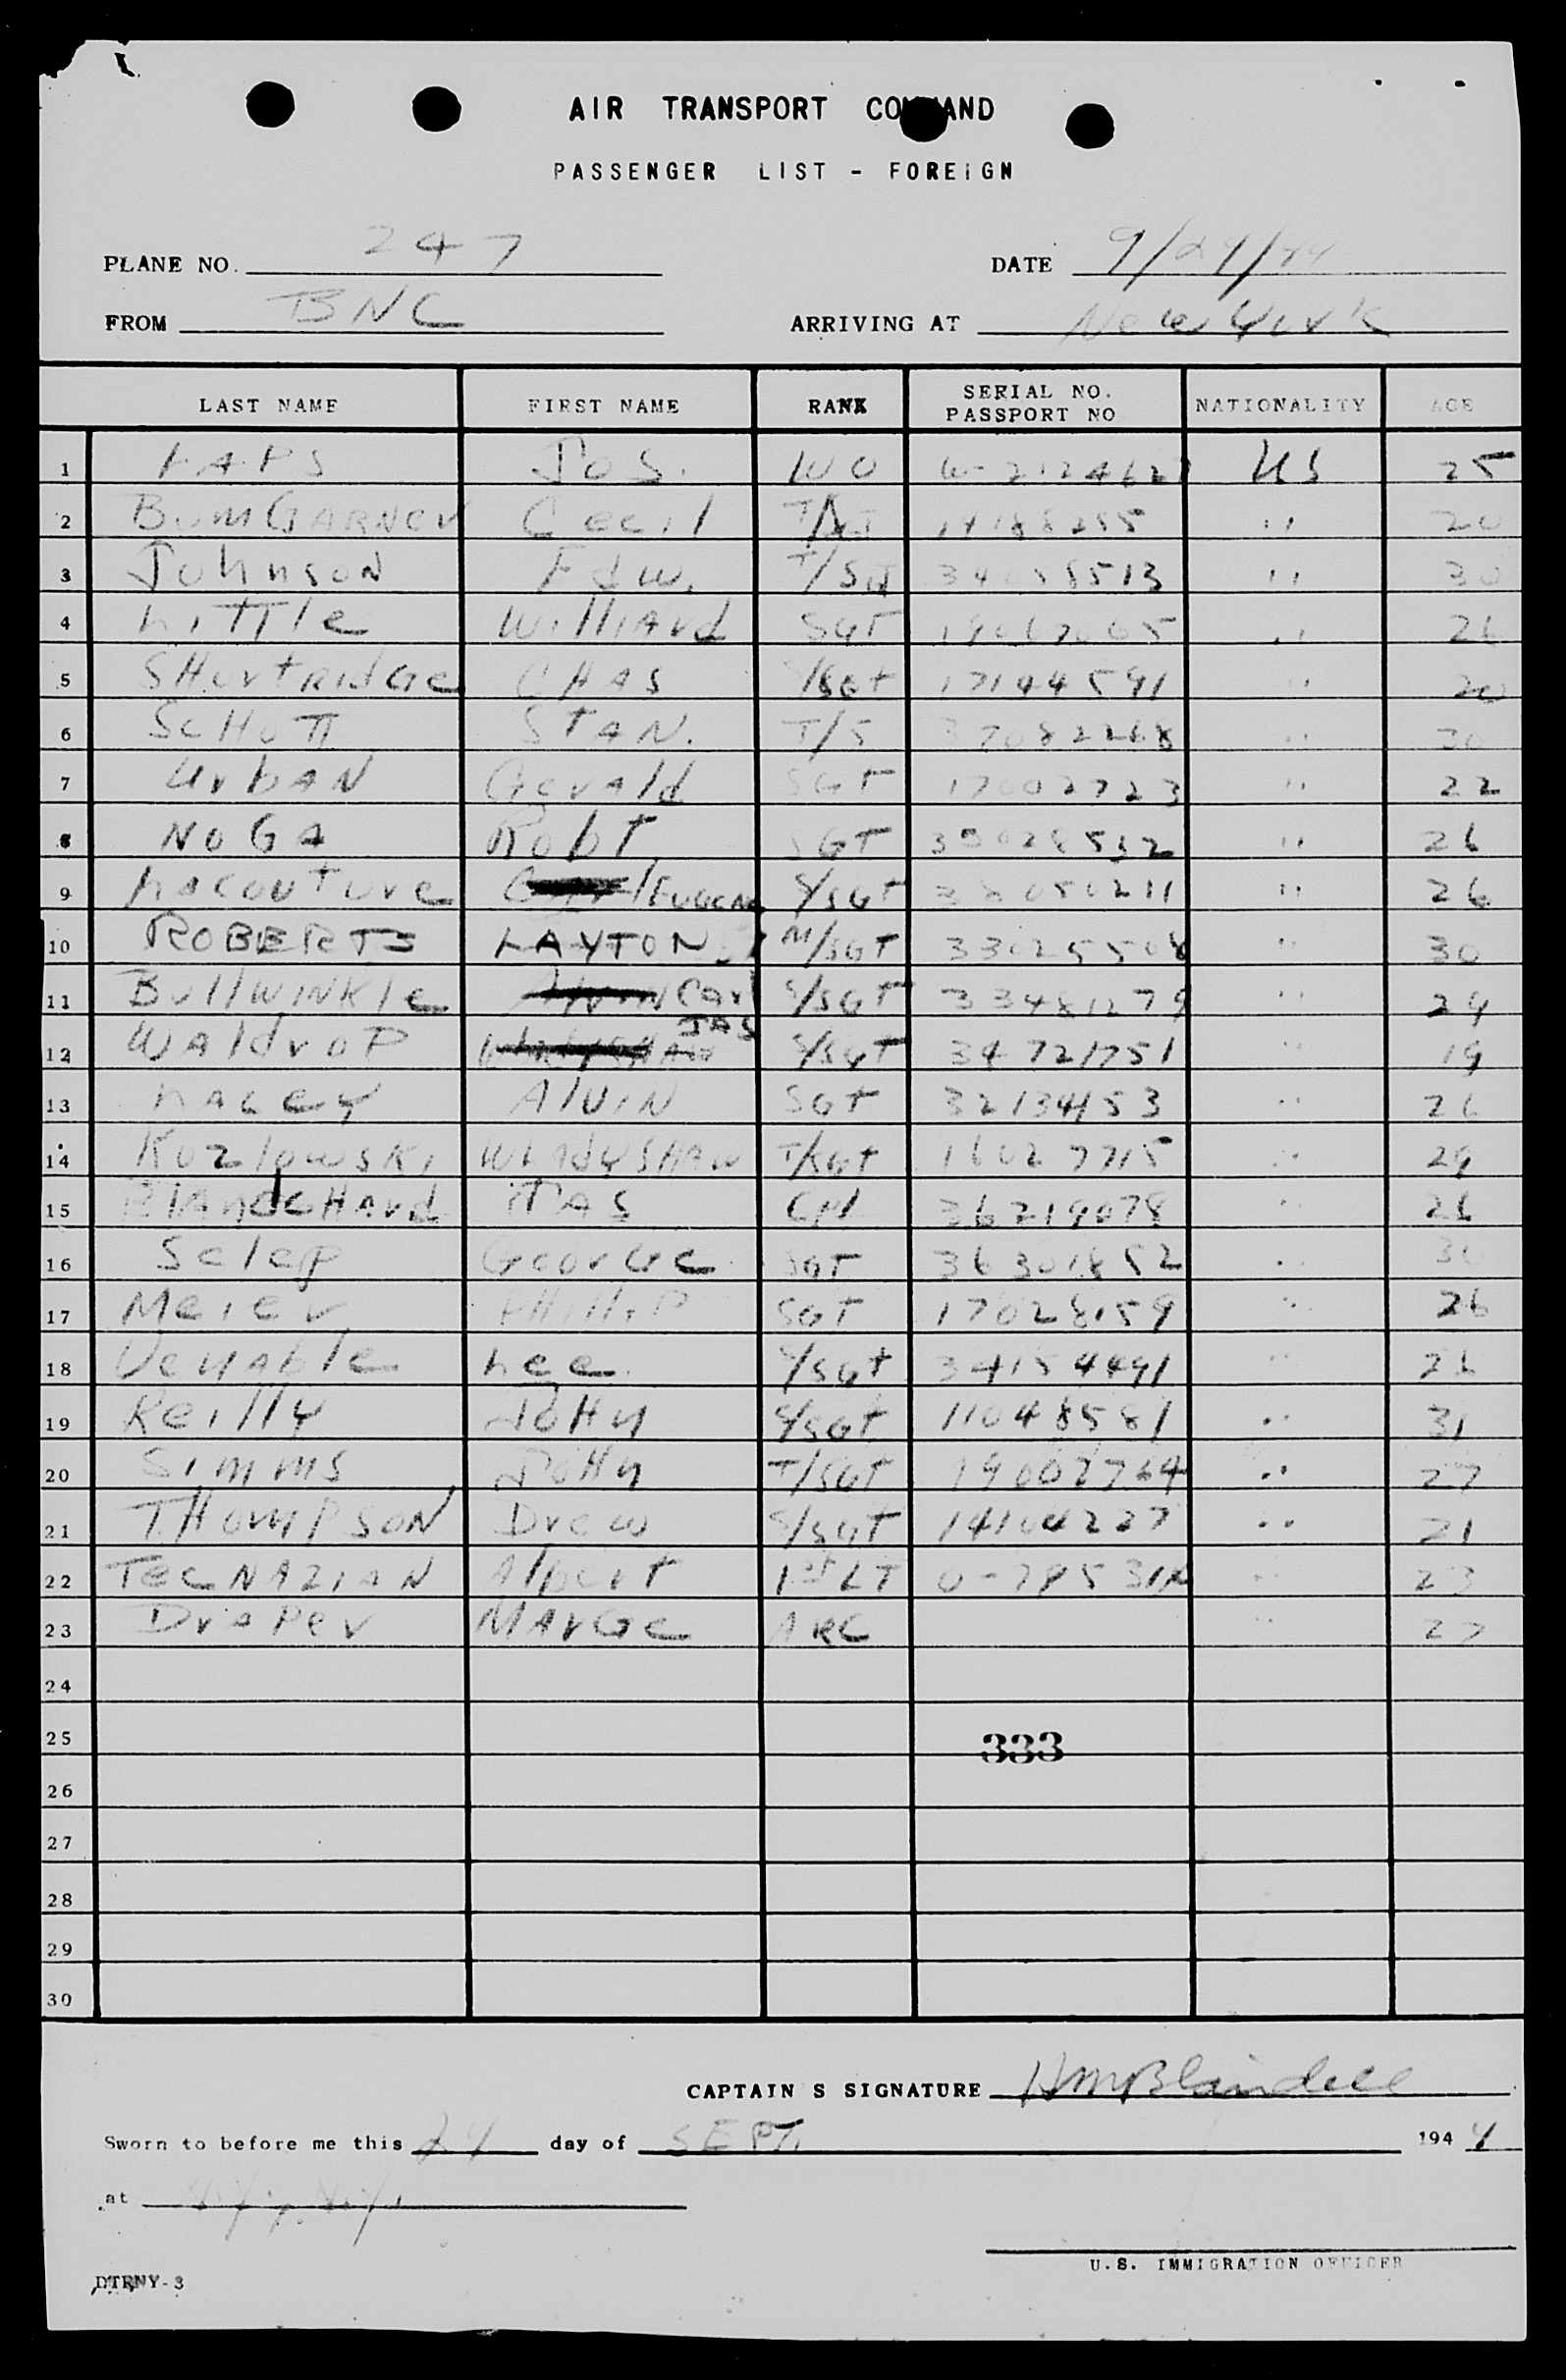 AIR TRANSPORT COMMAND
PASSENGER LIST - FOREIGN
PLANE NO. 247 DATE 9/24/44
FROM BNC ARRIVING AT New York
LAST NAME FIRST NAME RANK SERIAL NO. PASSPORT NO NATIONALITY AGE
1 Jos. WO US 25
2 BumGARNer Cecil 14188255 " 20
3 Johnson Edw. T/SGT 34058513 " 30
4 LiTTle WilliArd SGT 19067065 " 26
5 SHortRidGe CHAS /SGt 17144591 " 20
6 ScHoTT STAN. T/5 37082268 " 30
7 UrbAN GerAld SGT 17002723 " 22
8 NOGA RobT SGT 39028532 " 26
9 LAcouture Eugene S/SGt 38050211 " 26
10 ROBERTS LAYTON M/SGT 33025508 " 30
11 BullWINKle Carl S/SGT 33481279 " 29
12 WAldroP JAS S/SGT 34721751 " 19
13 LAcey AlviN SGt 32134153 " 26
14 Kozlowski WLAdySHAW T/SGt 16027715 " 29
15 BlAncHArd JAS CPl 36219078 " 26
16 Selep GeorGe SGT 36301852 " 30
17 Meier PHilliP SGT 17028159 " 26
18 VenAble Lee S/SGt 34154491 " 26
19 Reilly JoHn S/SGt 11048581 " 31
20 Simms JoHn T/SGT 19002764 " 27
21 THomPSON Drew S/SGT 14104227 " 21
22 TecNAZIAN Albert 1st LT " 23
23 DrAPer MArGe ARC " 27
24
25
333
26
27
28
29
30
CAPTAIN S SIGNATURE HMBlaisdell
Sworn to before me this 24 day of SEPT. 194 4
at N.Y. N.Y.
U.S. IMMIGRATION OFFICER
DTRNY-3